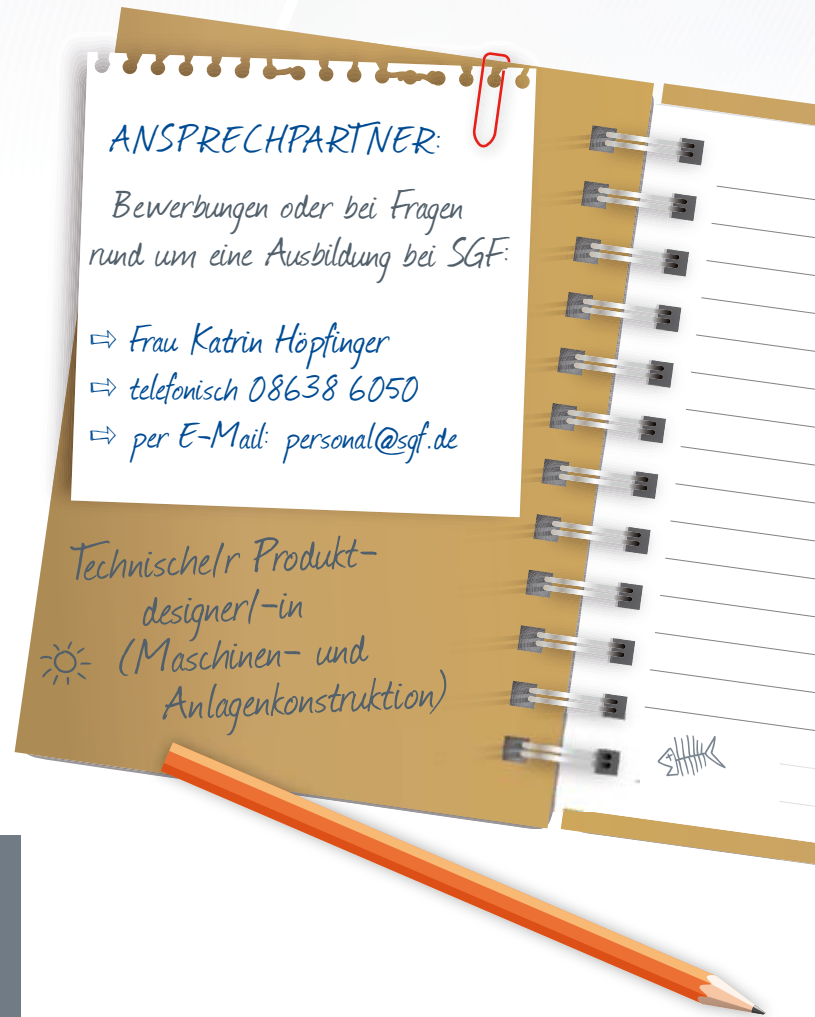 ANSPRECHPARTNER:
Bewerbungen oder bei Fragen
rund um eine Ausbildung bei SGF:
⇨ Frau Katrin Höpfinger
⇨ telefonisch 08638 6050
⇨ per E-Mail: personal@sgf.de
Technische/r Produkt-
designer/-in
(Maschinen- und
Anlagenkonstruktion)